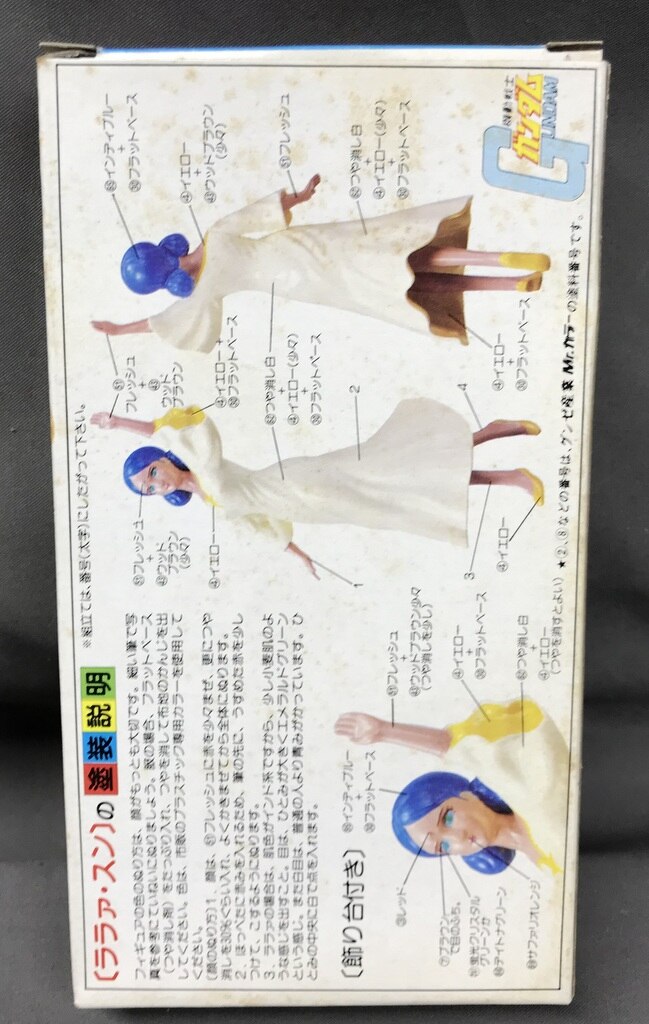 〔ララァ・スン〕の塗装説明
※組立ては、番号(太字)にしたがって下さい。
機動戦士
ガンダム
GUNDAM
フィギュアの色のぬり方は、顔がもっとも大切です。細い筆で写
真を参考にていねいにぬりましょう。服の場合、フラットベース
(つや消し剤)をたっぷり入れ、つやを消して布地のかんじを出
してください。色は、市販のプラスチック専用カラーを使用して
ください。
(顔のぬり方)1.顔は、�51フレッシュに赤を少々まぜ、更につや
消しを30%くらい入れ、よくかきまぜてから全体にぬります。
2.ほっぺたに赤みを入れるため、筆の先に、うすめた赤を少し
つけて、こするようにぬります。
3.ララァの場合は、肌色がインド系ですから、少し小麦肌のよ
うな感じを出すこと。目は、ひとみが大きくエメラルドグリーン
という感じ。また白目は、普通の人より青みがかっています。ひ
とみの中央に白で点を入れます。
〔飾り台付き〕
㉚フラットベース
③レッド
⑦ブラウン
で目のふち。
蛍光クリスタル
グリーンか
デイトナグリーン
サファリオレンジ
㊿フレッシュ
+
ウッドブラウン少々
(つや消しを少し)
④イエロー
+
㉚フラットベース
つや消し白
+
④イエロー
(つやを消すとよい)
フレッシュ
+
ウッド
ブラウン
(少々)
④イエロー
1
2
3
4
④イエロー
フレッシュ
+
㊸
ウッド
ブラウン
④イエロー
+
㉚フラットベース
つや消し白
+
④イエロー(少々)
+
㉚フラットベース
+
㉚フラットベース
④イエロー
+
ウッドブラウン
(少々)
フレッシュ
つや消し白
+
④イエロー(少々)
+
㉚フラットベース
④イエロー
+
㉚フラットベース
★②、⑧などの番号は、グンゼ産業 Mr.カラーの塗料番号です。